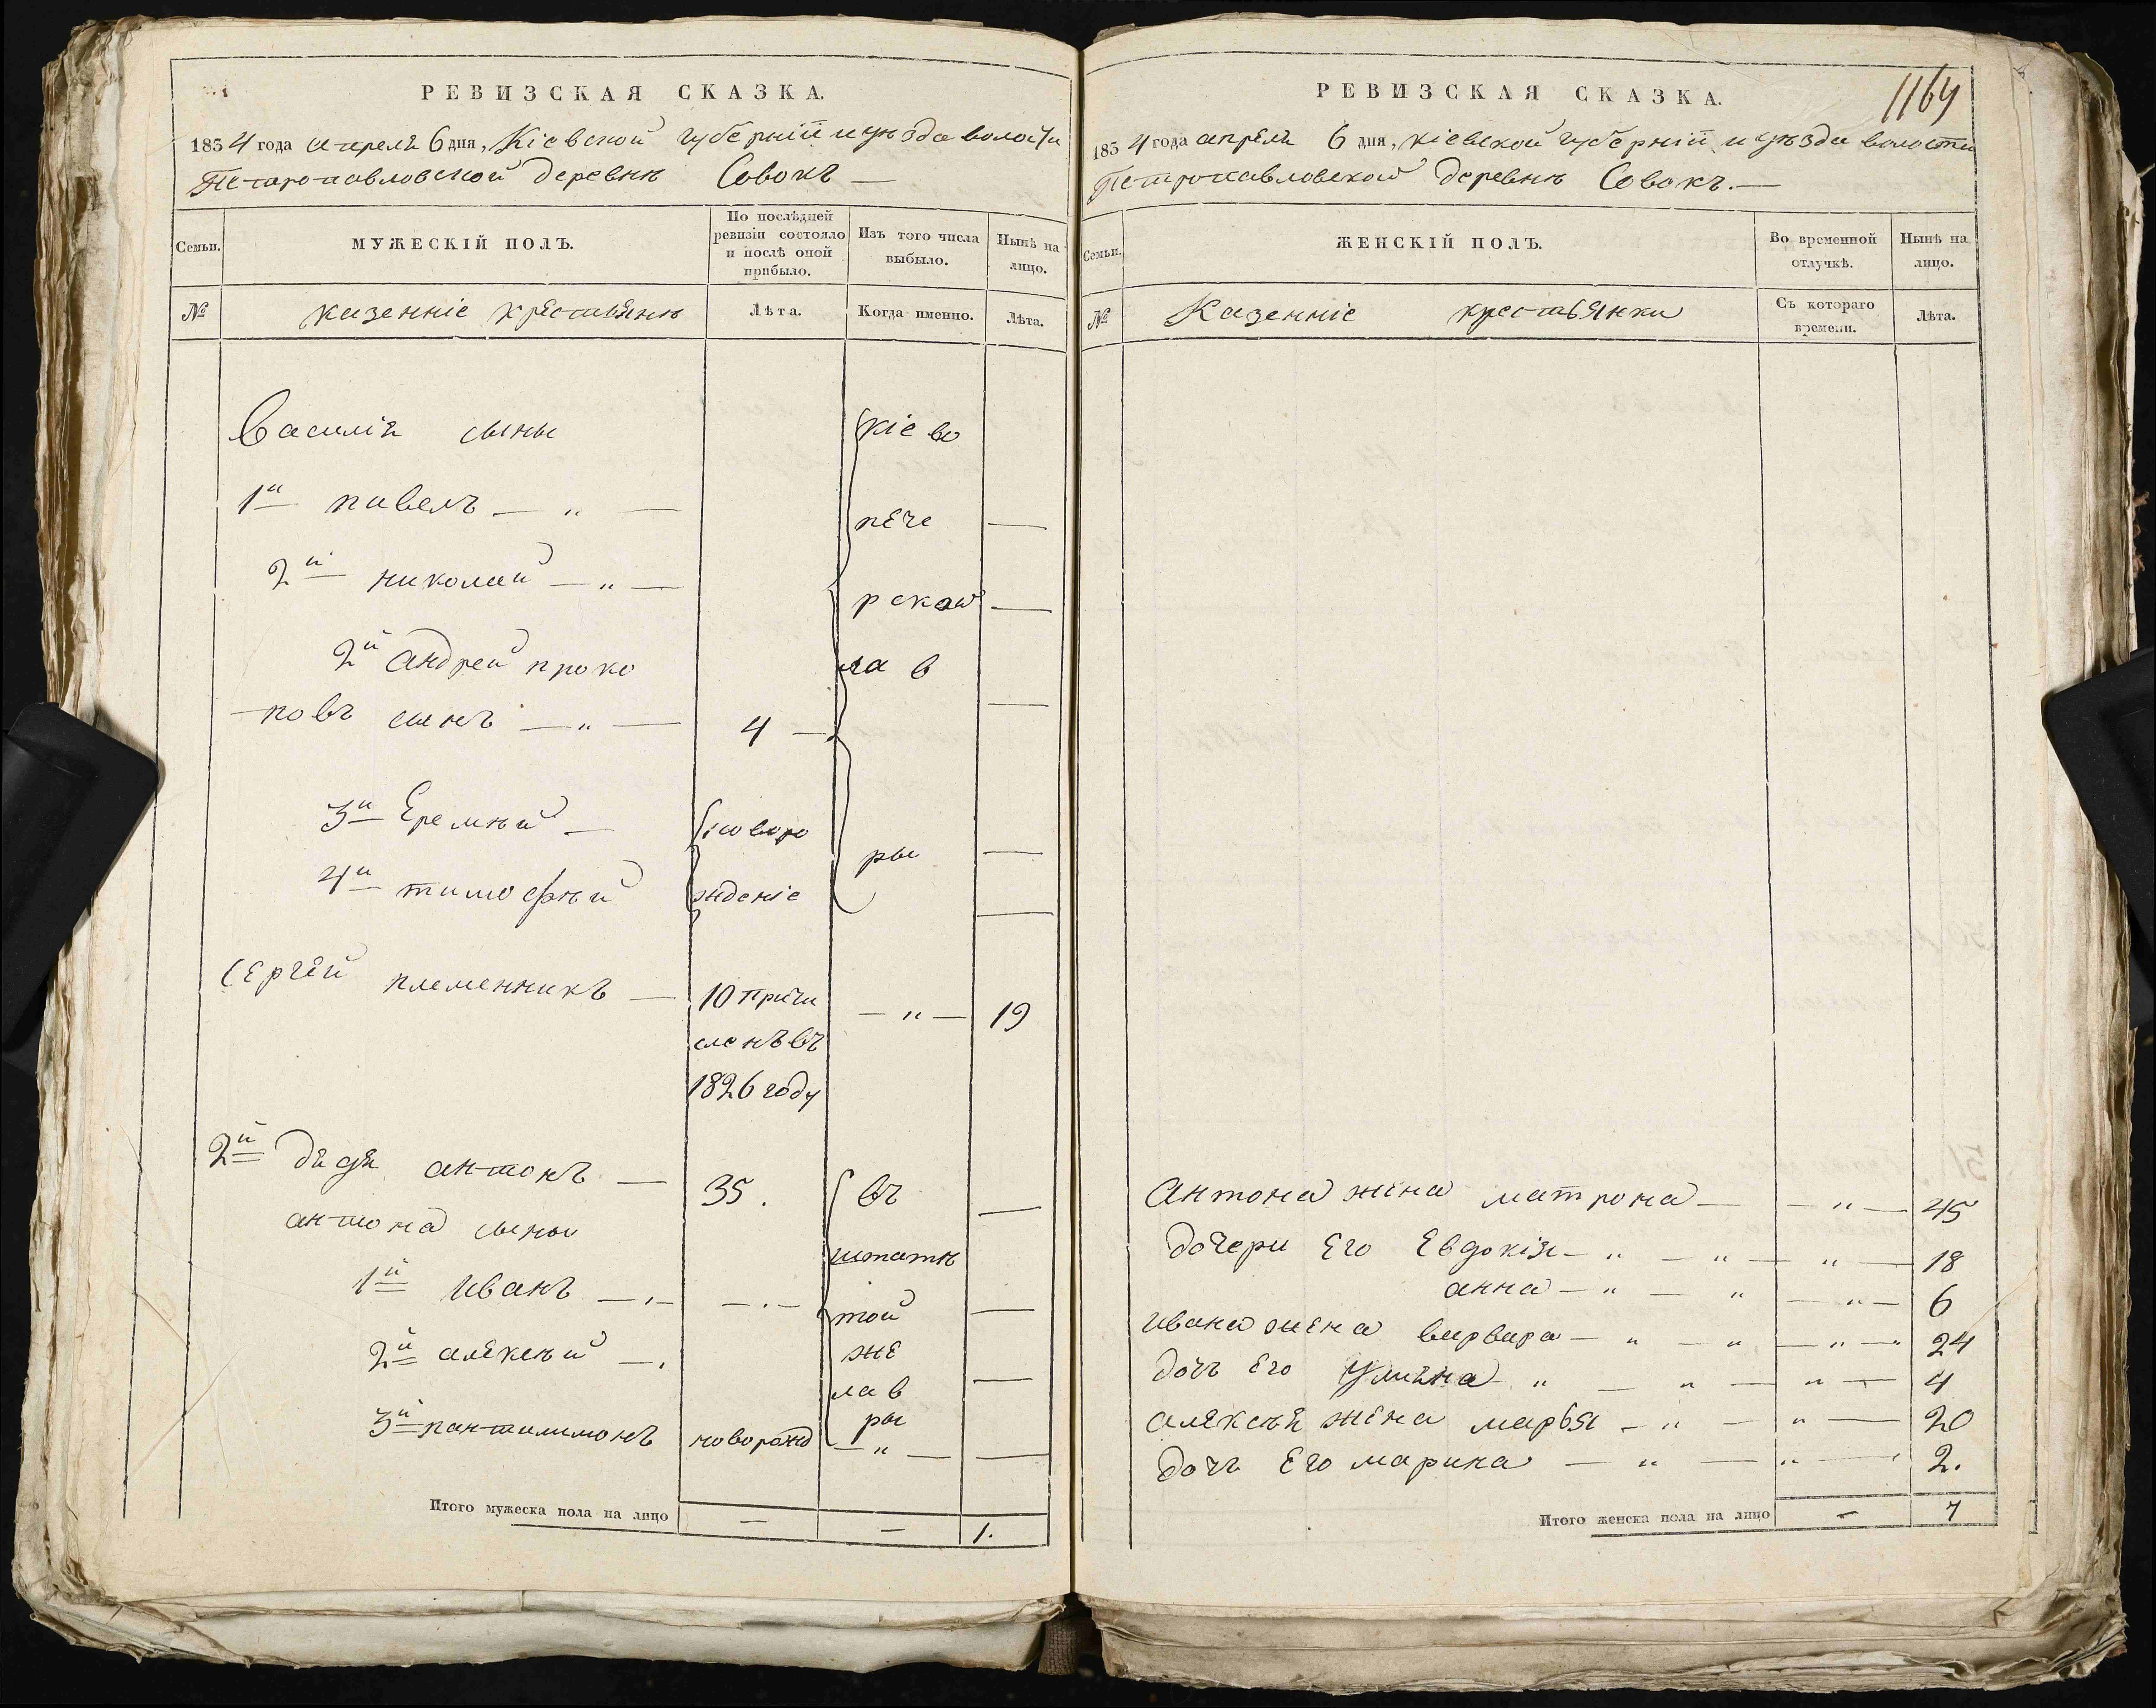 РЕВИЗСКАЯ СКАЗКА.
1834 года апреля 6 дня, Кіевской губерніи и уѣзда волости
Петропавловской деревнѣ Совокъ —
Семьи.
МУЖЕСКІЙ ПОЛЪ.
По послѣдней ревизіи состояло и послѣ оной прибыло.
Изъ того числа выбыло.
Нынѣ на лицо.
№
казенніе крестьянѣ
Лѣта.
Когда именно.
Лѣта.
Василія сыны
Кіево
1й павелъ — " —
пече
—
2й николай — " —
рской
—
2й андрей проко
лав
повъ сынъ — " —
4 —
—
3й Еремѣй —
новоро
ры
—
4й тимофѣй
жденіе
—
Сергѣй племенникъ —
10 причи
— " —
19
сленъ въ
1826 году
2й дядя антонъ —
35.
въ
—
антона сыны
штатѣ
1й иванъ — „ —
— „ —
той
—
2й алексѣй — „
же
лав
—
3й пантилимонъ
новорожд
ры
— " —
—
Итого мужеска пола на лицо
—
—
1.
1169
РЕВИЗСКАЯ СКАЗКА.
1834 года апреля 6 дня, Кіевской губерніи и уѣзда волости
Петропавловской деревнѣ Совокъ. —
Семьи.
ЖЕНСКІЙ ПОЛЪ.
Во временной отлучкѣ.
Нынѣ на лицо.
№
Казенніе крестьянки
Съ котораго времени.
Лѣта.
Антона жена матрона —
— " —
45
дочери Его Евдокія — " — " —
" —
18
анна — " — "
— " —
6
ивана жена варвара — " — "
— " —
24
дочъ Его Улияна " — " —
" —
4
алексѣя жена марья — " —
" —
20
дочъ Его марина — " —
" —
2.
Итого женска пола на лицо
—
7